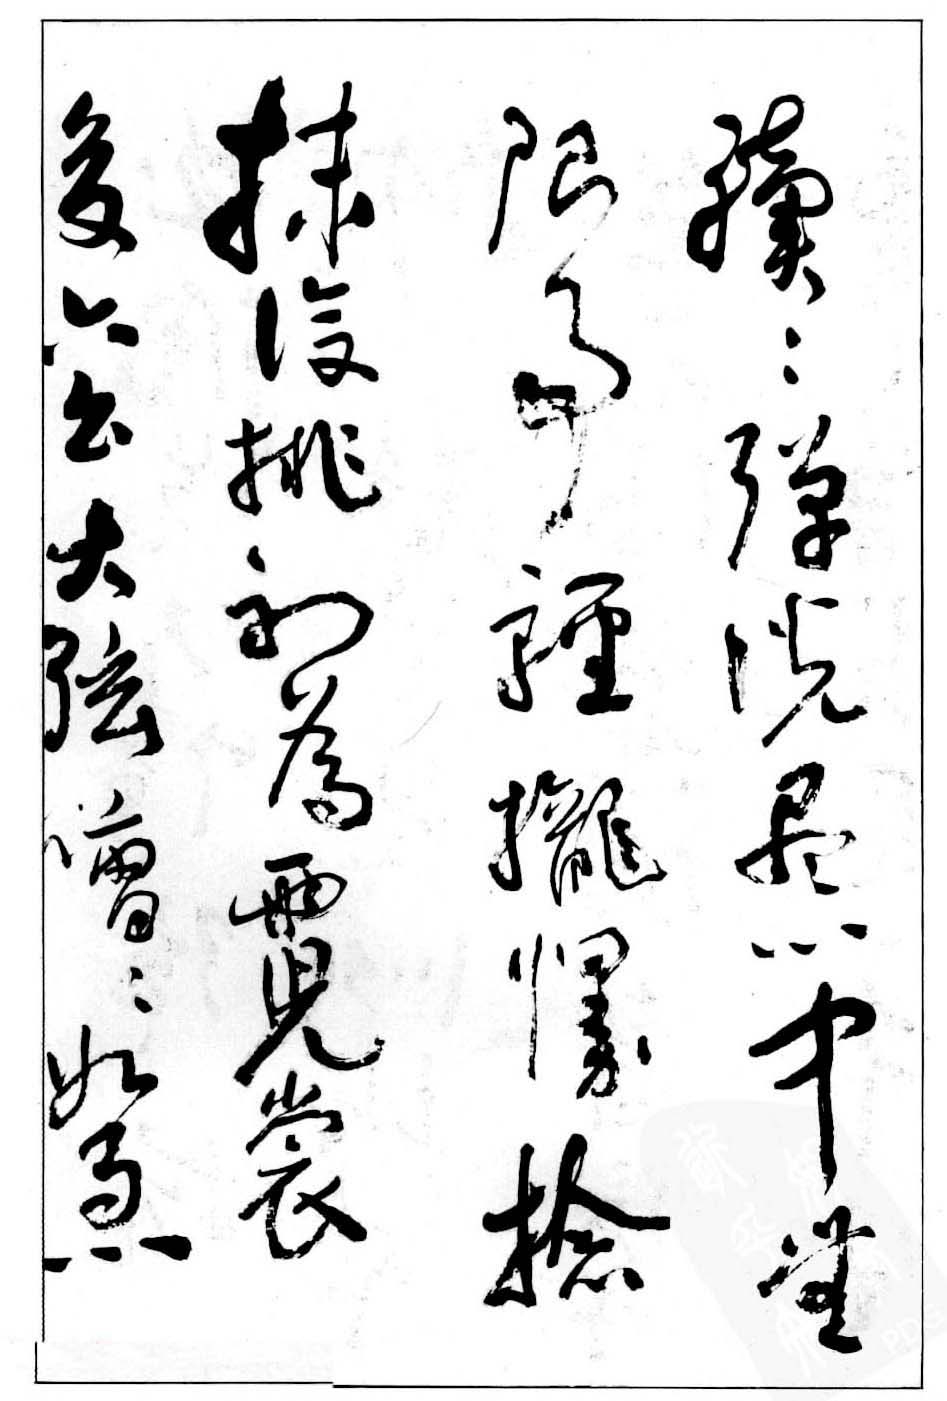 續〻彈說盡心中無
限事輕攏慢捻
抹復挑初為霓裳
後六幺大弦嘈〻如急